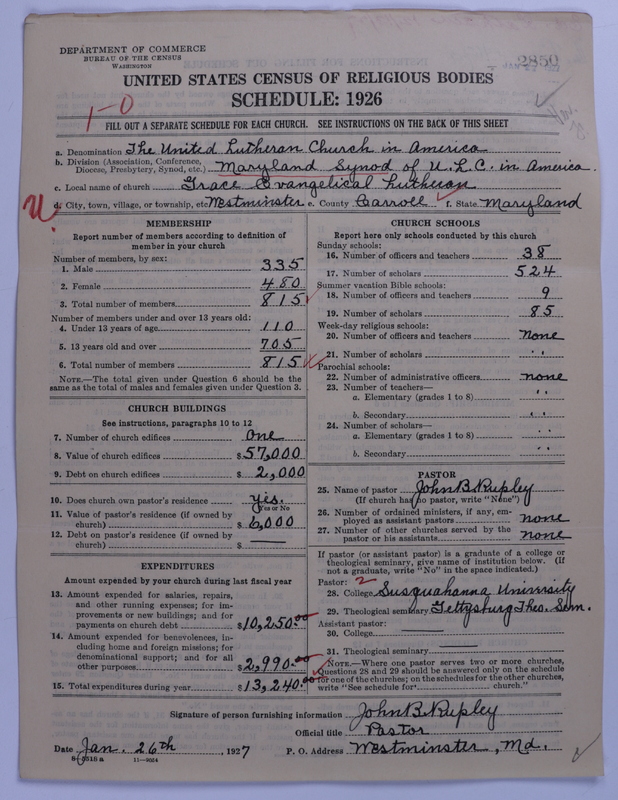 DEPARTMENT OF COMMERCE
BUREAU OF THE CENSUS
WASHINGTON
2850
UNITED STATES CENSUS OF RELIGIOUS BODIES
SCHEDULE: 1926
1-0
FILL OUT A SEPARATE SCHEDULE FOR EACH CHURCH. SEE INSTRUCTIONS ON THE BACK OF THIS SHEET
a. Denomination The United Lutheran Church in America
b. Division (Association, Conference, Diocese, Presbytery, Synod, etc.) Maryland Synod of U.L.C. in America.
c. Local name of church Grace Evangelical Lutheran
d. City, town, village, or township, etc. Westminster e. County Carroll f. State Maryland
U.
MEMBERSHIP
Report number of members according to definition of
member in your church
Number of members, by sex:
1. Male 335
2. Female 480
3. Total number of members 815
Number of members under and over 13 years old:
4. Under 13 years of age 110
5. 13 years old and over 705
6. Total number of members 815
NOTE.—The total given under Question 6 should be
same as the total of males and females given under Question 3.
CHURCH BUILDINGS
See instructions, paragraphs 10 to 12
7. Number of church edifices One
8. Value of church edifices $57,000
9. Debt on church edifices $2,000
10. Does church own pastor's residence Yes.
Yes or No
11. Value of pastor's residence (if owned by
church) $6,000
12. Debt on pastor's residence (if owned by
church) $ —
EXPENDITURES
Amount expended by your church during last fiscal year
13. Amount expended for salaries, repairs,
and other running expenses; for im-
provements or new buildings; and for
payments on church debt $10,250.00
14. Amount expended for benevolences, in-
cluding home and foreign missions; for
denominational support; and for all
other purposes $2,990.00
15. Total expenditures during year $13,240.00
CHURCH SCHOOLS
Report here only schools conducted by this church
Sunday schools:
16. Number of officers and teachers 38
17. Number of scholars 524
Summer vacation Bible schools:
18. Number of officers and teachers 9
19. Number of scholars 85
Week-day religious schools:
20. Number of officers and teachers none
21. Number of scholars "
Parochial schools:
22. Number of administrative officers none
23. Number of teachers—
a. Elementary (grades 1 to 8) "
b. Secondary "
24. Number of scholars—
a. Elementary (grades 1 to 8) "
b. Secondary "
PASTOR
25. Name of pastor John B. Rupley
(If church has no pastor, write "None")
26. Number of ordained ministers, if any, em-
ployed as assistant pastors none
27. Number of other churches served by the
pastor or his assistants none
If pastor (or assistant pastor) is a graduate of a college or
theological seminary, give name of institution below. (If
not a graduate, write "No" in the space indicated.)
Pastor: 2
28. College Susquahanna University
29. Theological seminary Gettysburg Theo. Sem.
Assistant pastor:
30. College —
31. Theological seminary —
NOTE.—Where one pastor serves two or more churches,
Questions 28 and 29 should be answered only on the schedule
for one of the churches; on the schedules for the other churches,
write "See schedule for church."
Signature of person furnishing information John B. Rupley
Official title Pastor
Date Jan. 26th, 1927 P. O. Address Westminster, Md.
8-5518 a 11-9024